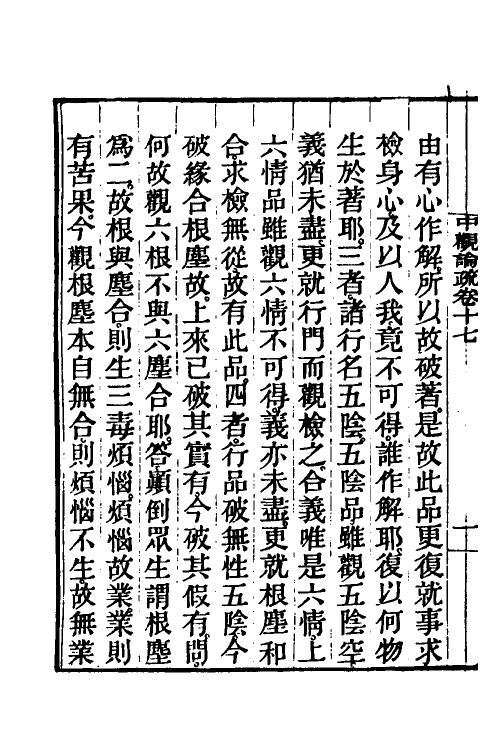 中觀論疏卷十七
十一
由有心作解。所以故破著。是故此品更復就事求
檢身心。及以人我竟不可得。誰作解耶。復以何物
生於著耶。三者。諸行名五陰。五陰品雖觀五陰空。
義猶未盡。更就行門而觀檢之。合義唯是六情。上
六情品雖觀六情不可得。義亦未盡。更就根塵和
合。求檢無從。故有此品。四者。行品破無性五陰。今
破緣合根塵故。上來已破其實有。今破其假有。問。
何故觀六根不與六塵合耶。答。顛倒眾生謂根塵
為二。故根與塵合。則生三毒煩惱。煩惱故業。業則
有苦果。今觀根塵本自無合。則煩惱不生。故無業